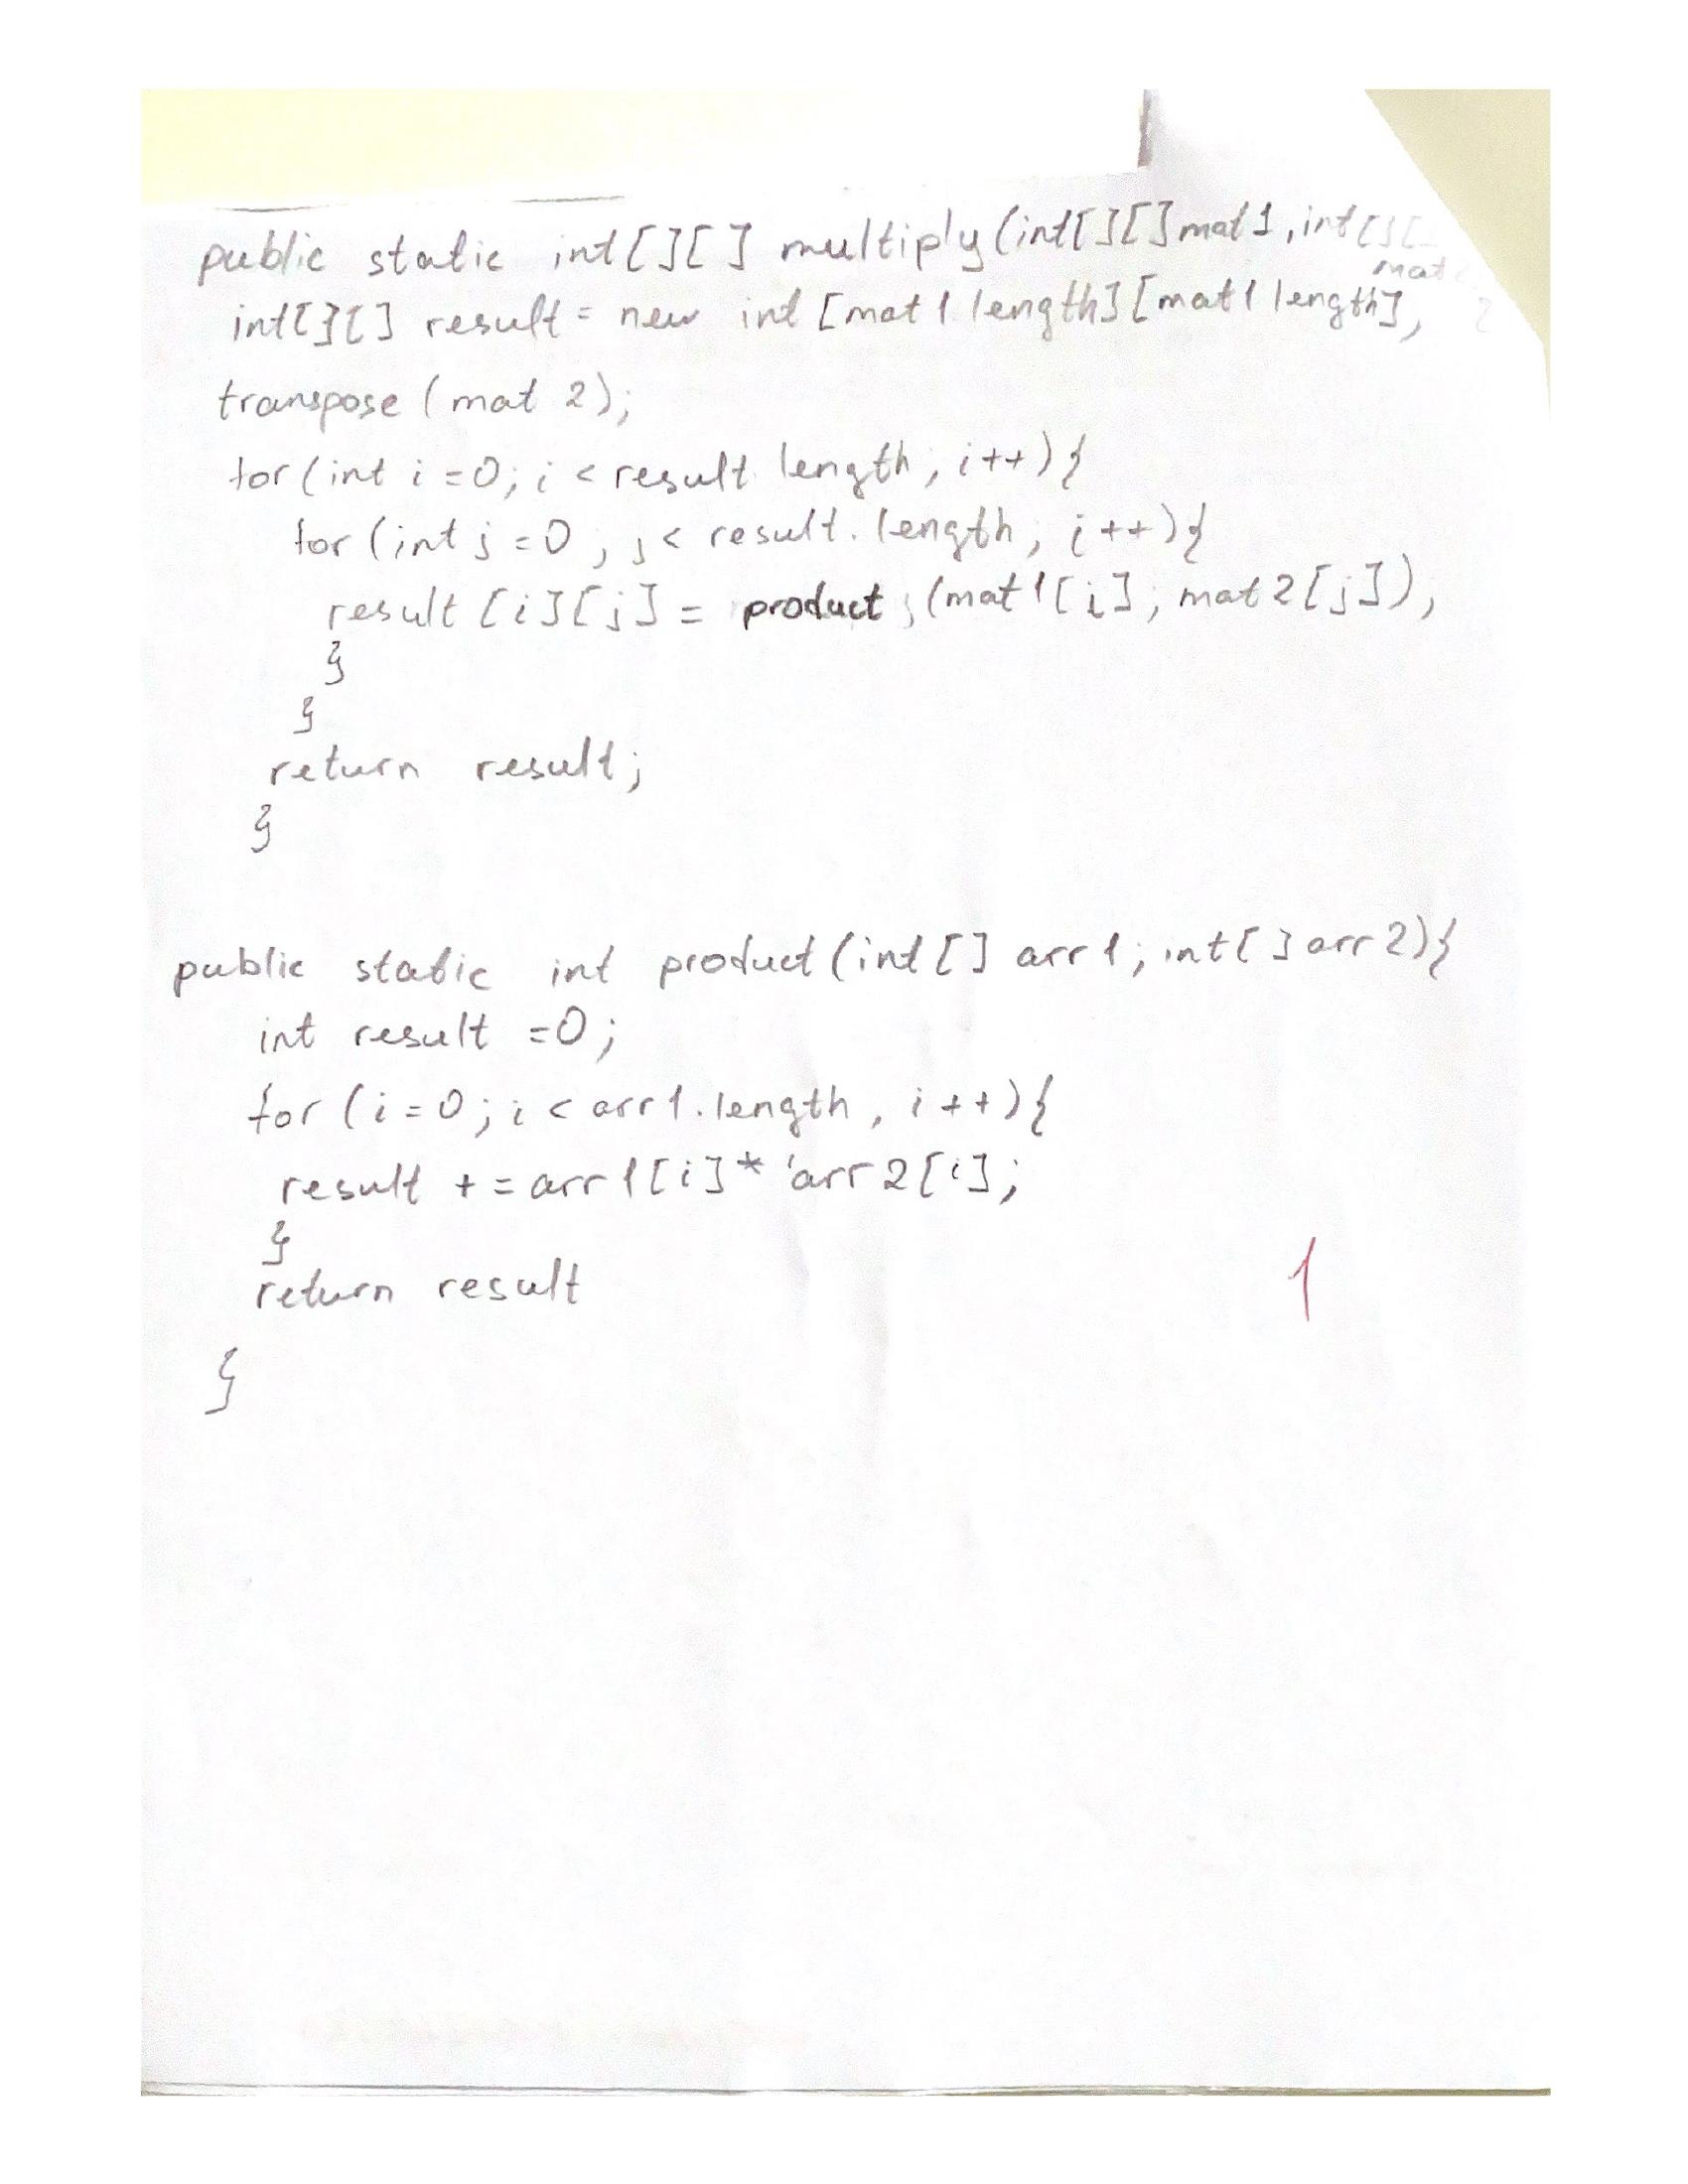 public static int[][] multiply(int[][] mat1, int[][
mat
int[][] result = new int [mat1.length][mat1 length],
transpose (mat 2);
for (int i =0; i < result. length, i++){
for (int j =0, j < result. length, i++){
result [i][j] = product, (mat1[i], mat2[j]),
}
}
return result;
}
public static int product (int [] arr1, int[] arr2){
int result =0;
for (i=0; i < arr1.length, i++){
result += arr1[i]* arr2[i];
}
return result
}
1